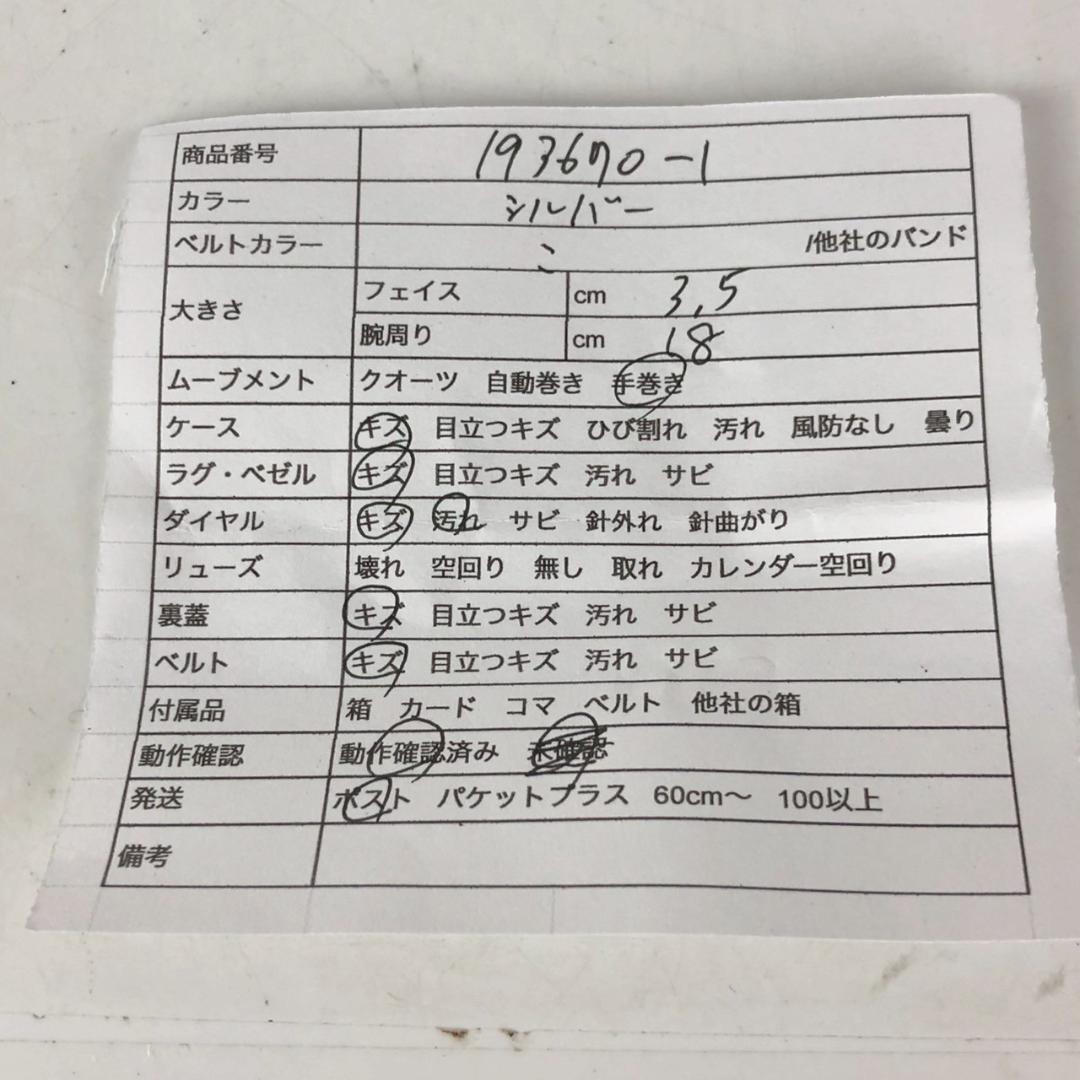 商品番号 193670-1
カラー シルバー
ベルトカラー 〃 /他社のバンド
大きさ フェイス cm 3.5
腕周り cm 18
ムーブメント クオーツ 自動巻き 手巻き
ケース キズ 目立つキズ ひび割れ 汚れ 風防なし 曇り
ラグ・ベゼル キズ 目立つキズ 汚れ サビ
ダイヤル キズ 汚れ サビ 針外れ 針曲がり
リューズ 壊れ 空回り 無し 取れ カレンダー空回り
裏蓋 キズ 目立つキズ 汚れ サビ
ベルト キズ 目立つキズ 汚れ サビ
付属品 箱 カード コマ ベルト 他社の箱
動作確認 動作確認済み 未確認
発送 ポスト パケットプラス 60cm〜 100以上
備考